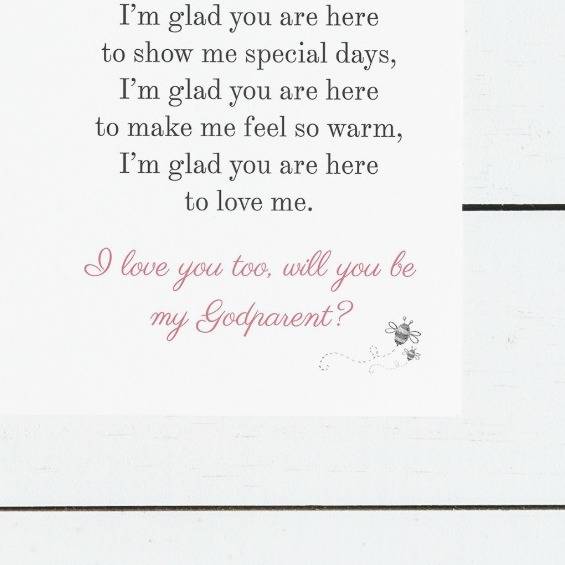 I'm glad you are here
to show me special days,
I'm glad you are here
to make me feel so warm,
I'm glad you are here
to love me.
I love you too, will you be
my Godparent?